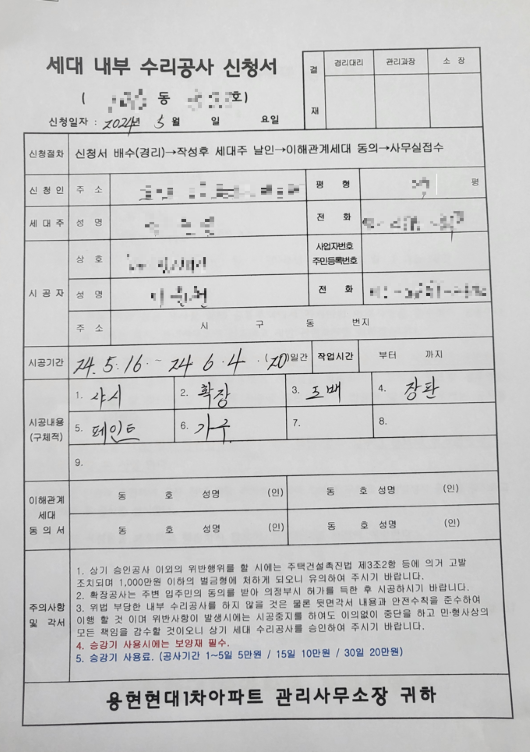 세대 내부 수리공사 신청서
( 동 호)
신청일자 : 2024년 5월 일 요일
결재 경리대리 관리과장 소 장
신청절차 신청서 배수(경리)→작성후 세대주 날인→이해관계세대 동의→사무실접수
신청인 주 소 평 형 평
세대주 성 명 전 화
시공자 상 호 사업자번호 주민등록번호
성 명 전 화
주 소 시 구 동 번지
시공기간 24. 5. 16. ~ 24 6. 4. (20)일간 작업시간 부터 까지
시공내용 (구체적)
1. 샤시 2. 확장 3. 도배 4. 장판
5. 페인트 6. 가구 7. 8.
9.
이해관계 세대 동의서
동 호 성명 (인) 동 호 성명 (인)
동 호 성명 (인) 동 호 성명 (인)
주의사항 및 각서
1. 상기 승인공사 이외의 위반행위를 할 시에는 주택건설촉진법 제3조2항 등에 의거 고발
조치되며 1,000만원 이하의 벌금형에 처하게 되오니 유의하여 주시기 바랍니다.
2. 확장공사는 주변 입주민의 동의를 받아 의정부시 허가를 득한 후 시공하시기 바랍니다.
3. 위법 부당한 내부 수리공사를 하지 않을 것은 물론 뒷면각서 내용과 안전수칙을 준수하여
이행 할 것 이며 위반사항이 발생시에는 시공중지를 하여도 이의없이 중단을 하고 민·형사상의
모든 책임을 감수할 것이오니 상기 세대 수리공사를 승인하여 주시기 바랍니다.
4. 승강기 사용시에는 보양재 필수.
5. 승강기 사용료. (공사기간 1~5일 5만원 / 15일 10만원 / 30일 20만원)
용현현대1차아파트 관리사무소장 귀하